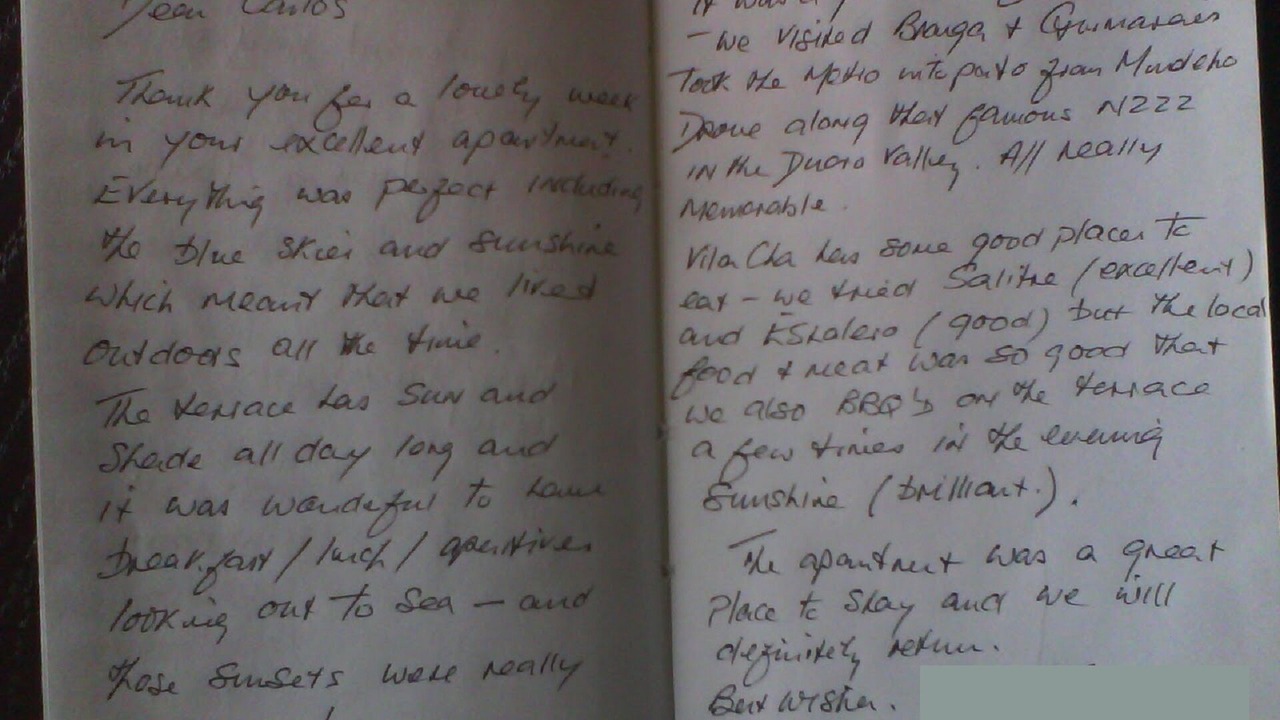 Dear Carlos
Thank you for a lovely week
in your excellent apartment.
Everything was perfect including
the blue skies and sunshine
which meant that we lived
outdoors all the time.
The terrace has sun and
shade all day long and
it was wonderful to have
breakfast / lunch / aperitives
looking out to sea – and
those sunsets were really
it was
– we visited Braga + Guimaraes
Took the Metro into porto from Mindelo
Drove along that famous N222
in the Duoro Valley. All really
memorable.
Vila Cha has some good places to
eat – we tried Salitre (excellent)
and Eskalero (good) but the local
food + meat was so good that
we also BBQ'd on the terrace
a few times in the evening
sunshine (brilliant.).
The apartment was a great
place to stay and we will
definitely return.
Best wishes.